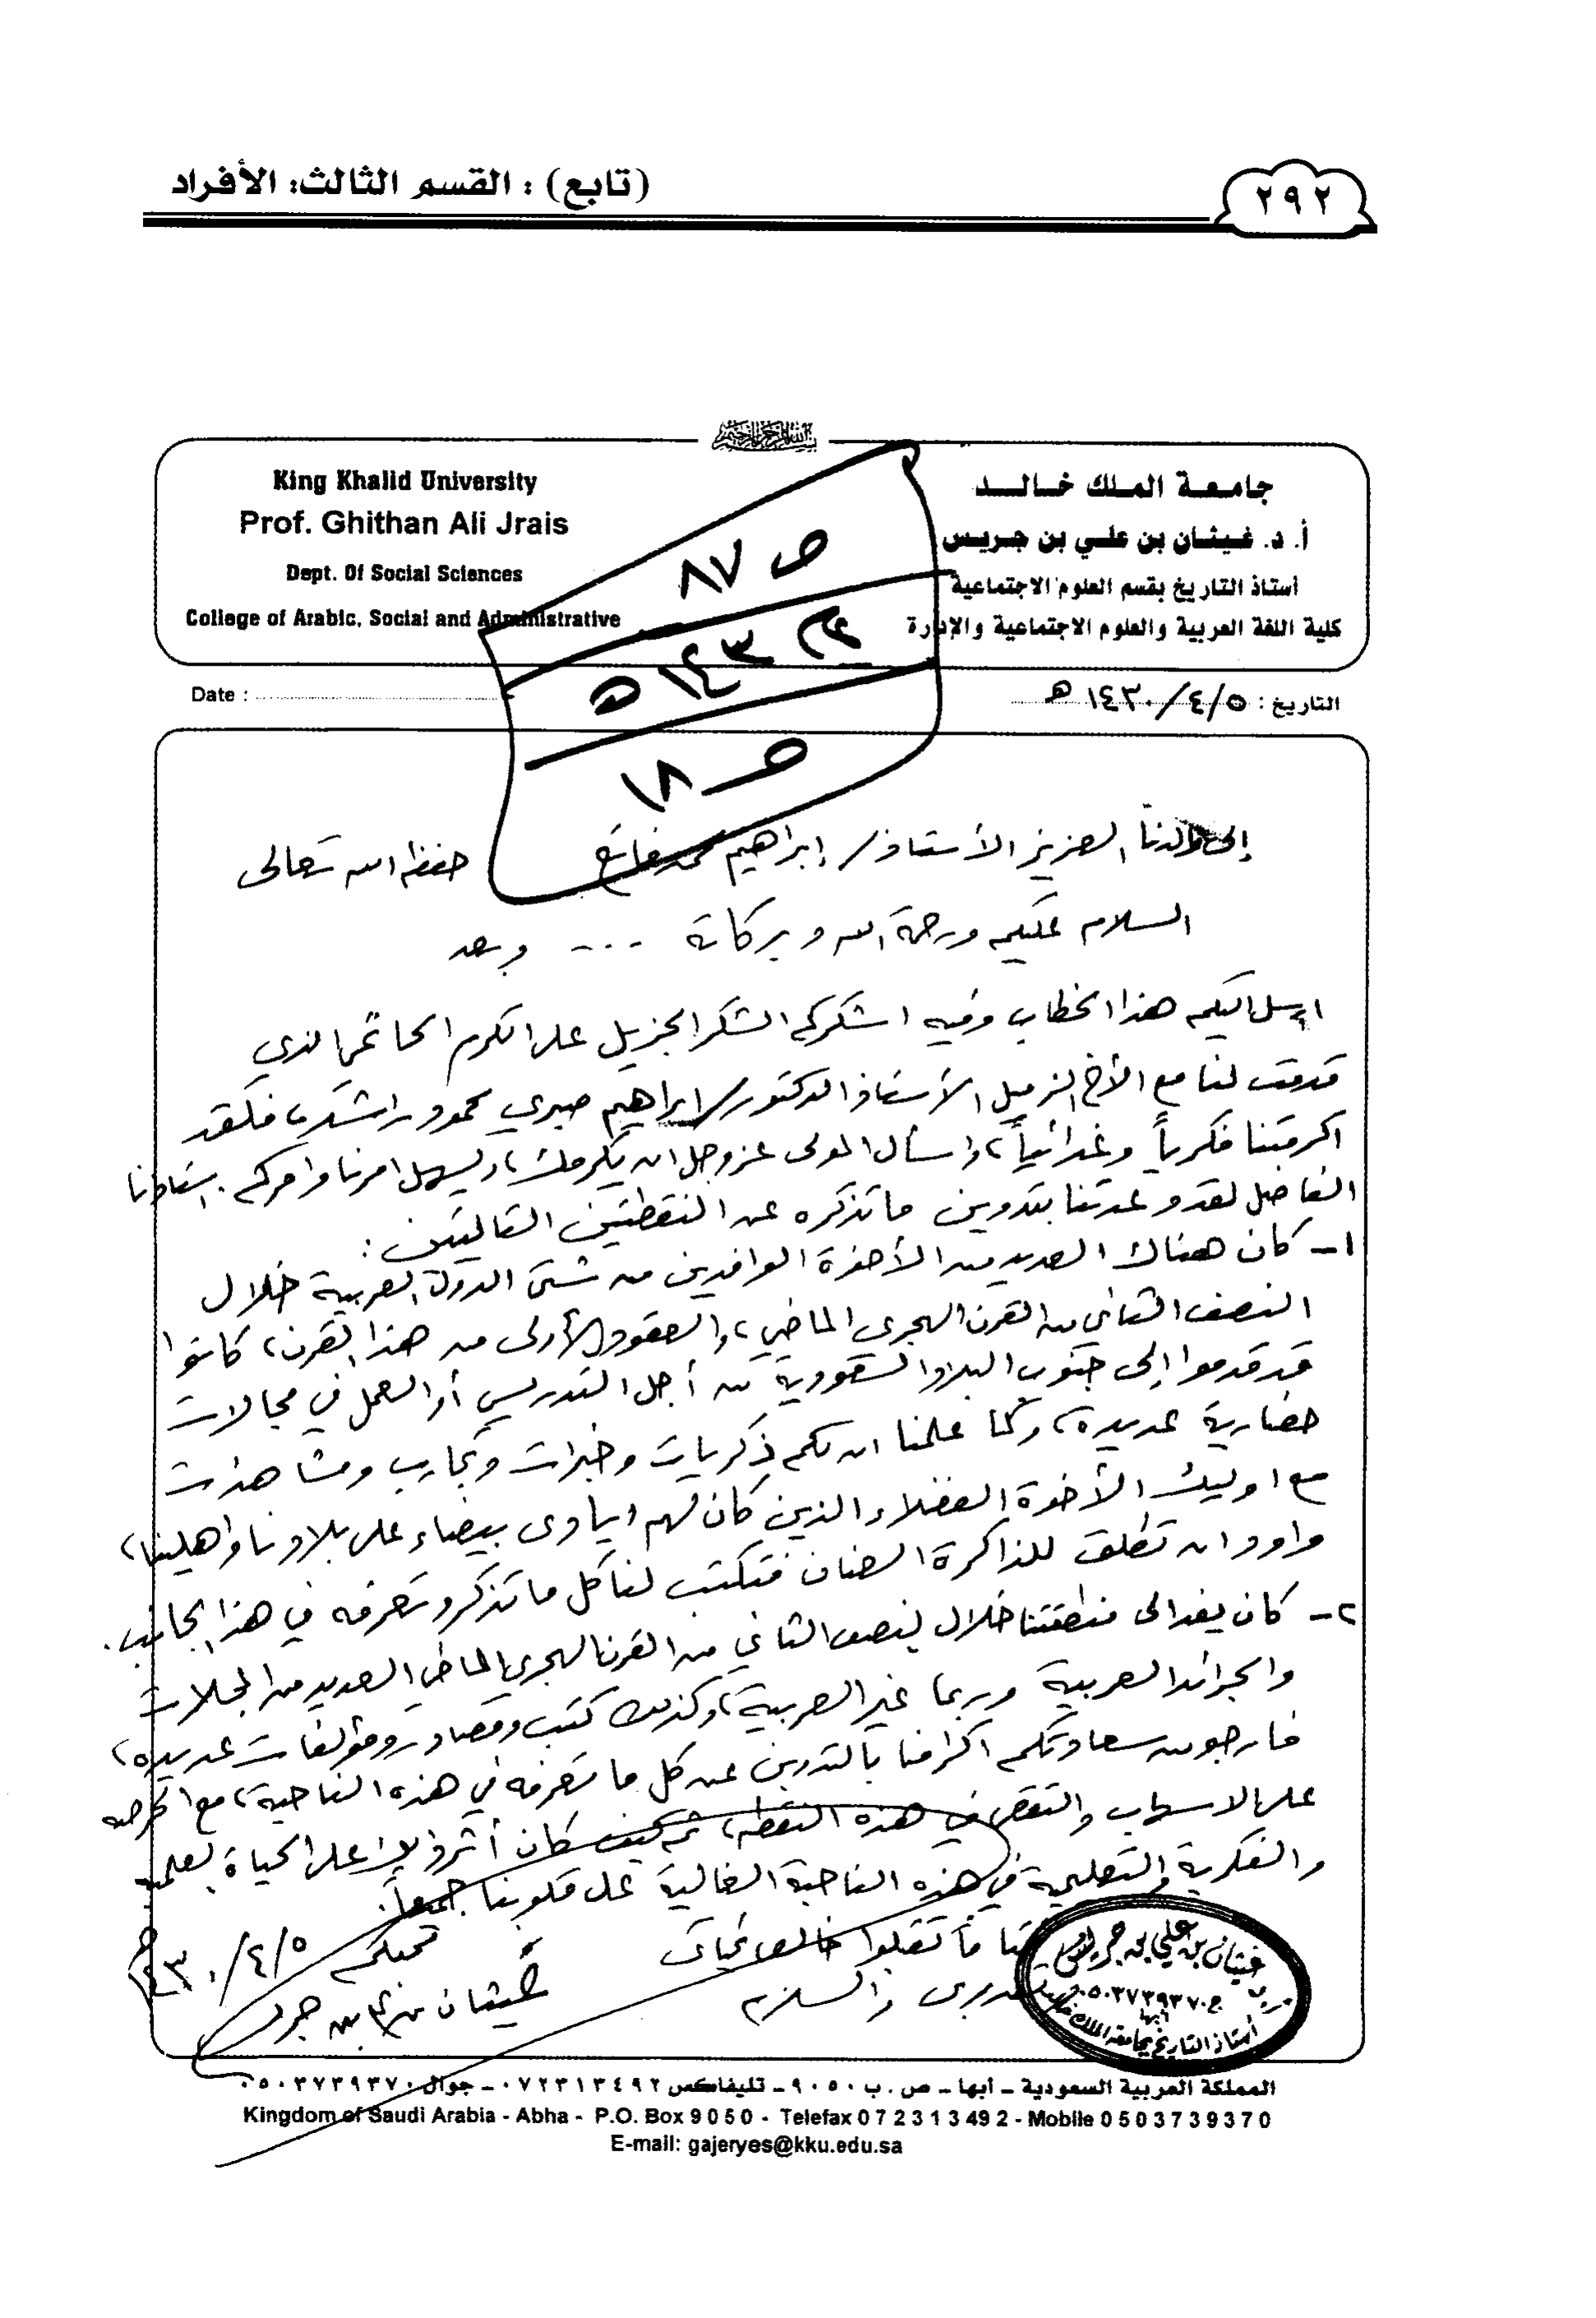 (تابع) : القسم الثالث: الأفراد
٢٩٢
بسم الله الرحمن الرحيم
جامعة الملك خالد
أ. د. غيثان بن علي بن جريس
أستاذ التاريخ بقسم العلوم الاجتماعية
كلية اللغة العربية والعلوم الاجتماعية والإدارة
King Khalid University
Prof. Ghithan Ali Jrais
Dept. Of Social Sciences
College of Arabic, Social and Administrative
ص ٨٧
١٤٣٠ هـ
ص ١٨
التاريخ : ٥/٤/١٤٣٠ هـ
Date :
إلى والدنا العزيز الأستاذ/ إبراهيم محمد فائع حفظه الله تعالى
السلام عليكم ورحمة الله وبركاته ... وبعد
ارسل اليكم هذا الخطاب وفيه اشكركم الشكر الجزيل على الكرم الحاتمي الذي
قدمته لنا مع الأخ الزميل الأستاذ الدكتور/ ابراهيم صبري محمود راشد، فلقد
اكرمتنا فكرياً وغذائياً، واسأل المولى عز وجل ان يكرمك، ويسهل امرنا وامركم. استاذنا
الفاضل لقد وعدتنا بتدوين ما تذكره عن النقطتين التاليتين :
١- كان هناك العديد من الأخوة الوافدين من شتى الدول العربية خلال
النصف الثاني من القرن الهجري الماضي، والعقود الأولى من هذا القرن، كانوا
قد قدموا إلى جنوب البلاد السعودية من أجل التدريس أو العمل في مجالات
حضارية عديدة، وكما علمنا ان لكم ذكريات وخبرات وتجارب ومشاهدات
مع اوليك الأخوة الفضلاء الذين كان لهم ايادي بيضاء على بلادنا واهلينا،
واود ان تطلق للذاكرة العنان فتكتب لنا كل ما تذكر وتعرفه في هذا الجانب.
٢- كان يفد الى منطقتنا خلال النصف الثاني من القرن الهجري الماضي العديد من المجلات
والجرائد العربية وربما غير العربية، وكذلك كتب ومصادر ومؤلفات عديدة،
فارجو من سعادتكم اكرامنا بالتدوين عن كل ما تعرفه في هذه الناحية، مع الحرص
على الاسهاب والتقصي في هذه النقطة، ثم كيف كان أثر ذلك على الحياة العلمية
والفكرية والتعليمية في هذه الناحية الغالية على قلوبنا جميعاً.
تقبلوا خالص تحياتي
وتقديري والسلام
محبكم
غيثان بن علي بن جريس
٥/٤/١٤٣٠هـ
غيثان بن علي بن جريس
ج ٠٥٠٣٧٣٩٣٧٠
أبها
أستاذ التاريخ بجامعة الملك خالد
المملكة العربية السعودية - أبها - ص . ب ٩٠٥٠ - تليفاكس ٠٧٢٣١٣٤٩٢ - جوال ٠٥٠٣٧٣٩٣٧٠
Kingdom of Saudi Arabia - Abha - P.O. Box 9050 - Telefax 072313492 - Mobile 0503739370
E-mail: gajeryes@kku.edu.sa